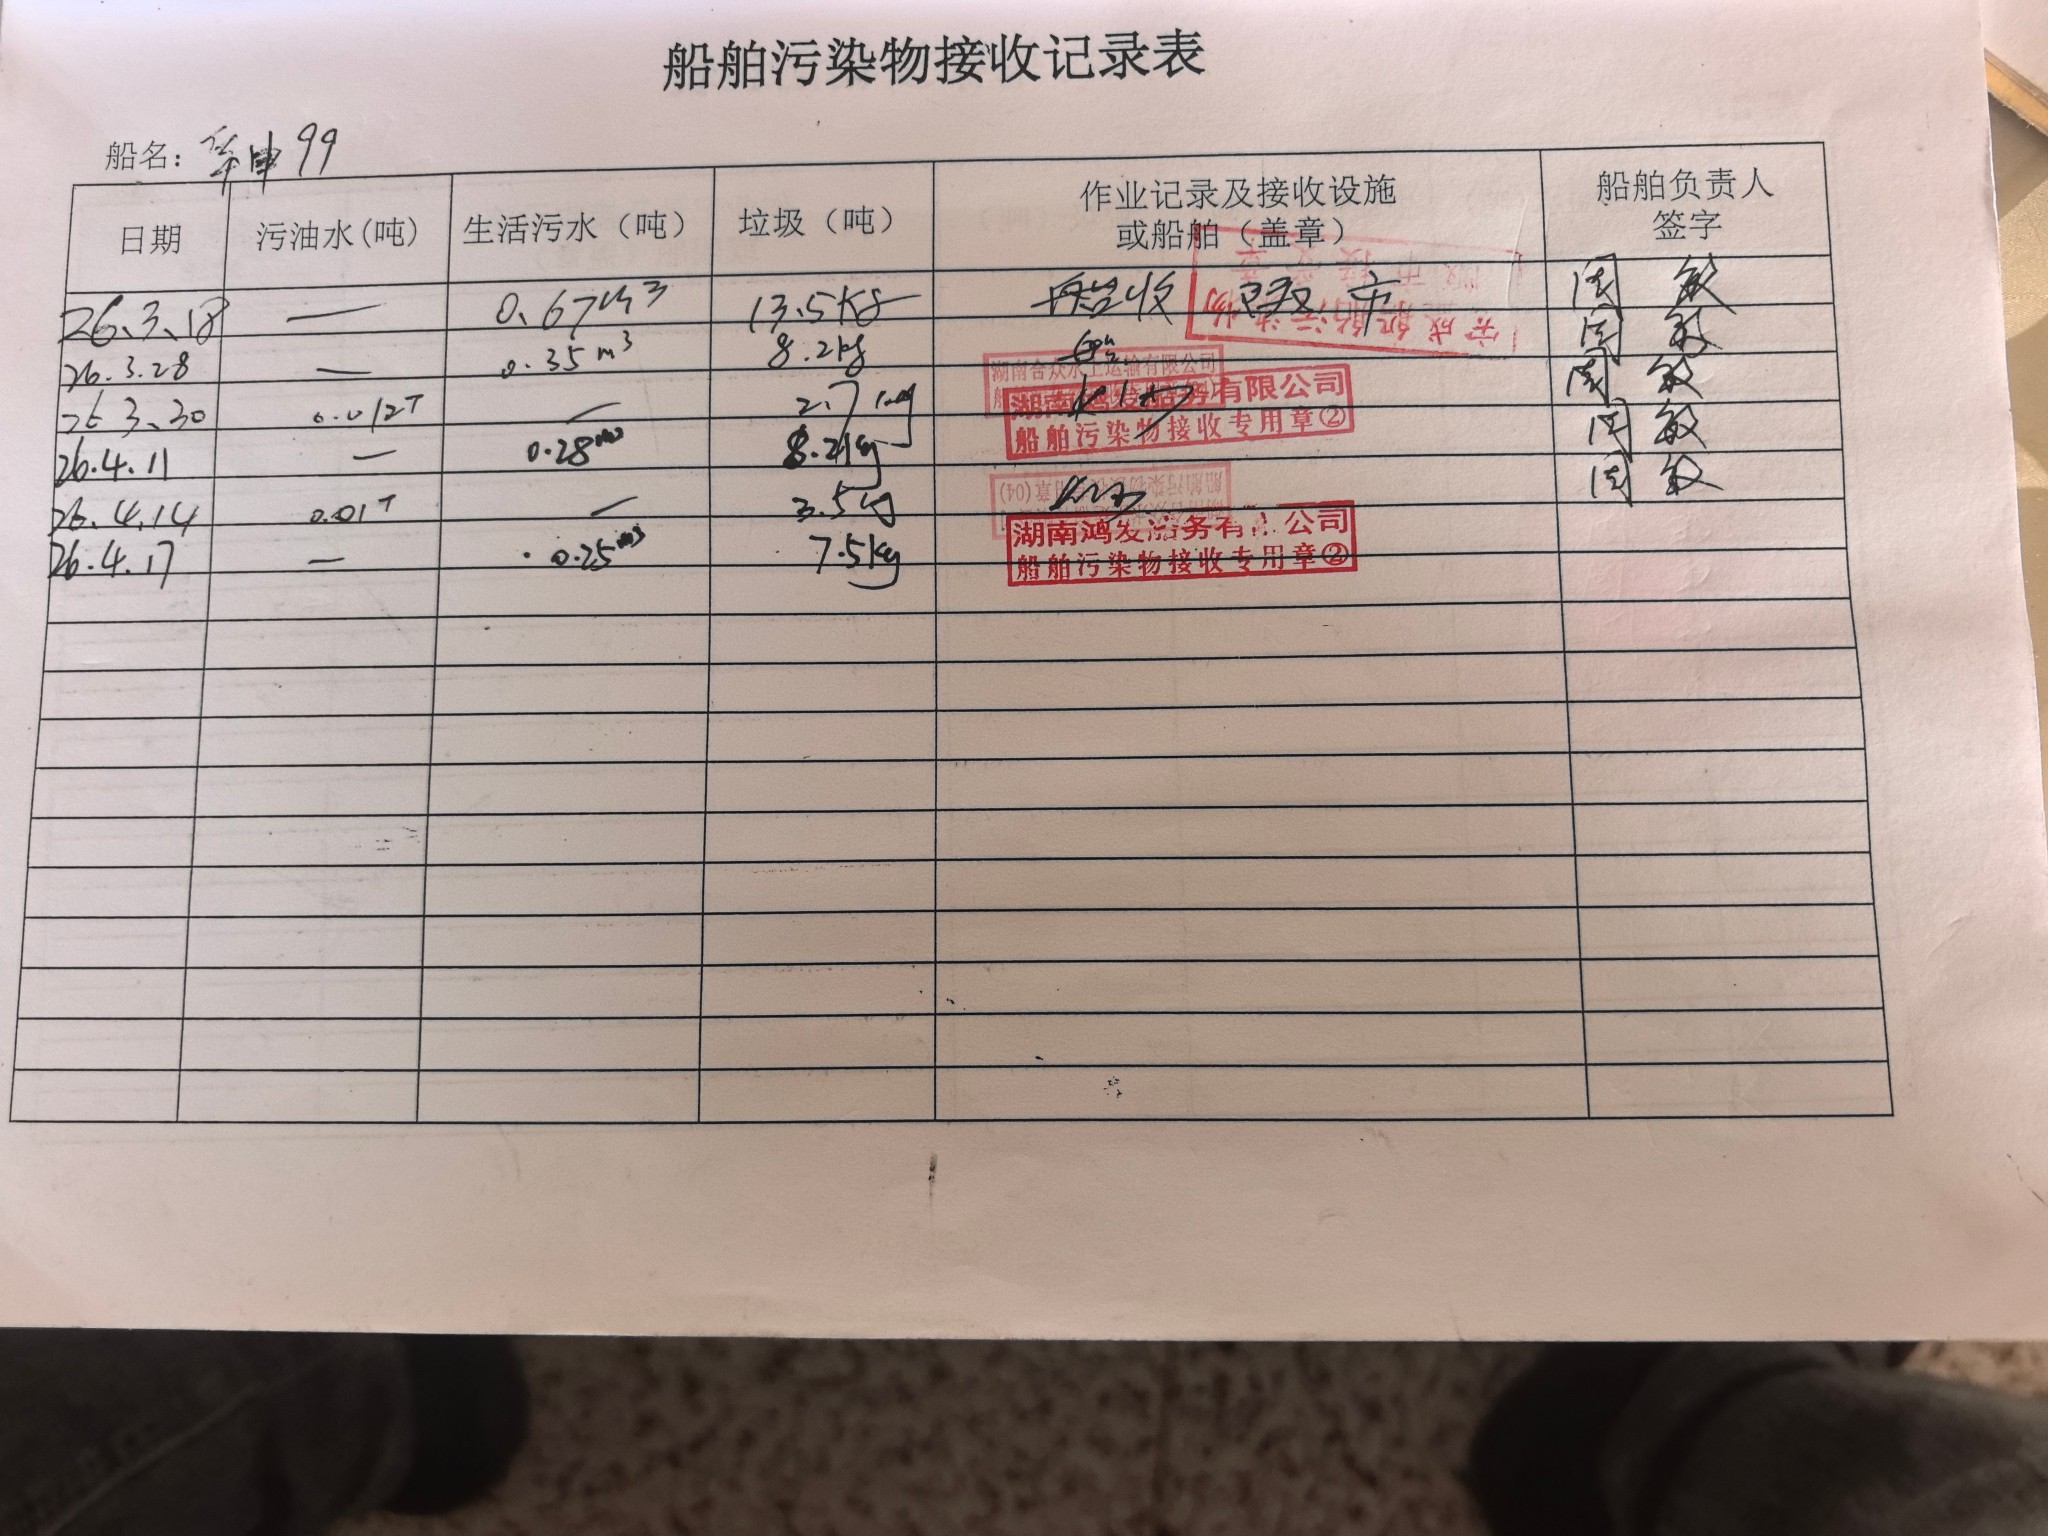 船舶污染物接收记录表
船名：华申99
日期 污油水(吨) 生活污水（吨） 垃圾（吨） 作业记录及接收设施或船舶（盖章） 船舶负责人签字
26.3.18 — 0.67m3 13.5kg 船收 周敏
26.3.28 — 0.35m3 8.2kg 周敏
湖南合众水上运输有限公司
26.3.30 0.012T — 2.7kg 周敏
湖南鸿发船务有限公司
船舶污染物接收专用章②
26.4.11 — 0.28m3 8.2kg 周敏
26.4.14 0.01T — 3.5kg 周敏
26.4.17 — 0.25m3 7.5kg
湖南鸿发船务有限公司
船舶污染物接收专用章②